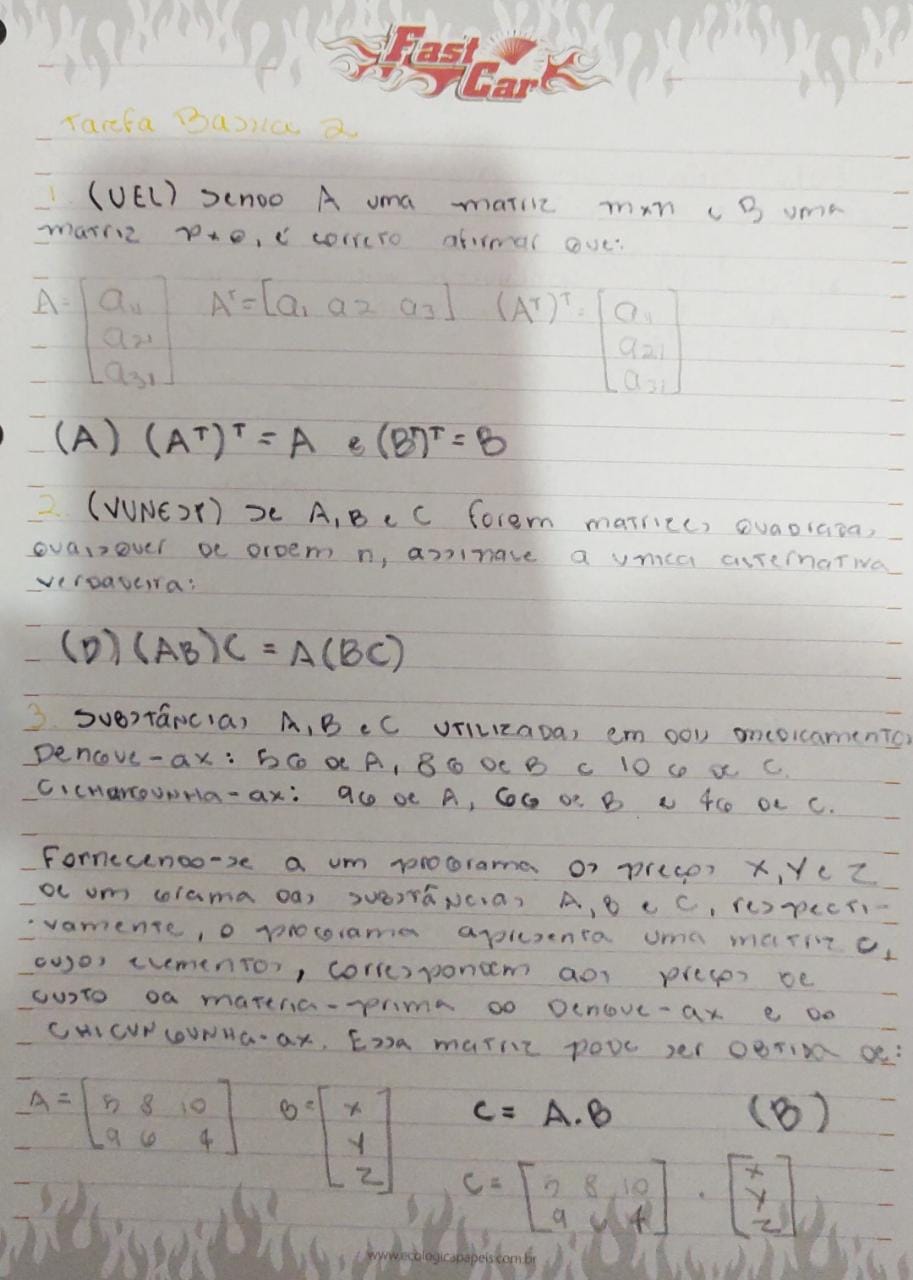 Fast
Car
Tarefa Basica 2
1. (UEL) Sendo A uma matriz mxn e B uma
matriz pxq, é correto afirmar que:
A = [a11 a21 a31] Aᵀ = [a1 a2 a3] (Aᵀ)ᵀ = [a11 a21 a31]
(A) (Aᵀ)ᵀ = A e (Bᵀ)ᵀ = B
2. (VUNESP) Se A, B e C forem matrizes quadradas
quaisquer de ordem n, assinale a unica alternativa
verdadeira:
(D) (AB)C = A(BC)
3. Substâncias A, B e C utilizadas em dois medicamentos
Dengue-ax: 5G de A, 8G de B e 10G de C.
CICHUNGUNHA-ax: 9G de A, 6G de B e 4G de C.
Fornecendo-se a um programa os preços X, Y e Z
de um grama das substâncias A, B e C, respecti-
vamente, o programa apresenta uma matriz C,
cujos elementos, correspondem aos preços de
custo da materia-prima do Dengue-ax e do
CHICUNGUNHA-ax. Essa matriz pode ser obtida de:
A = [5 8 10 9 6 4] B = [x y z] C = A.B (B)
C = [5 8 10 9 6 4] . [x y z]
www.ecologicapapeis.com.br